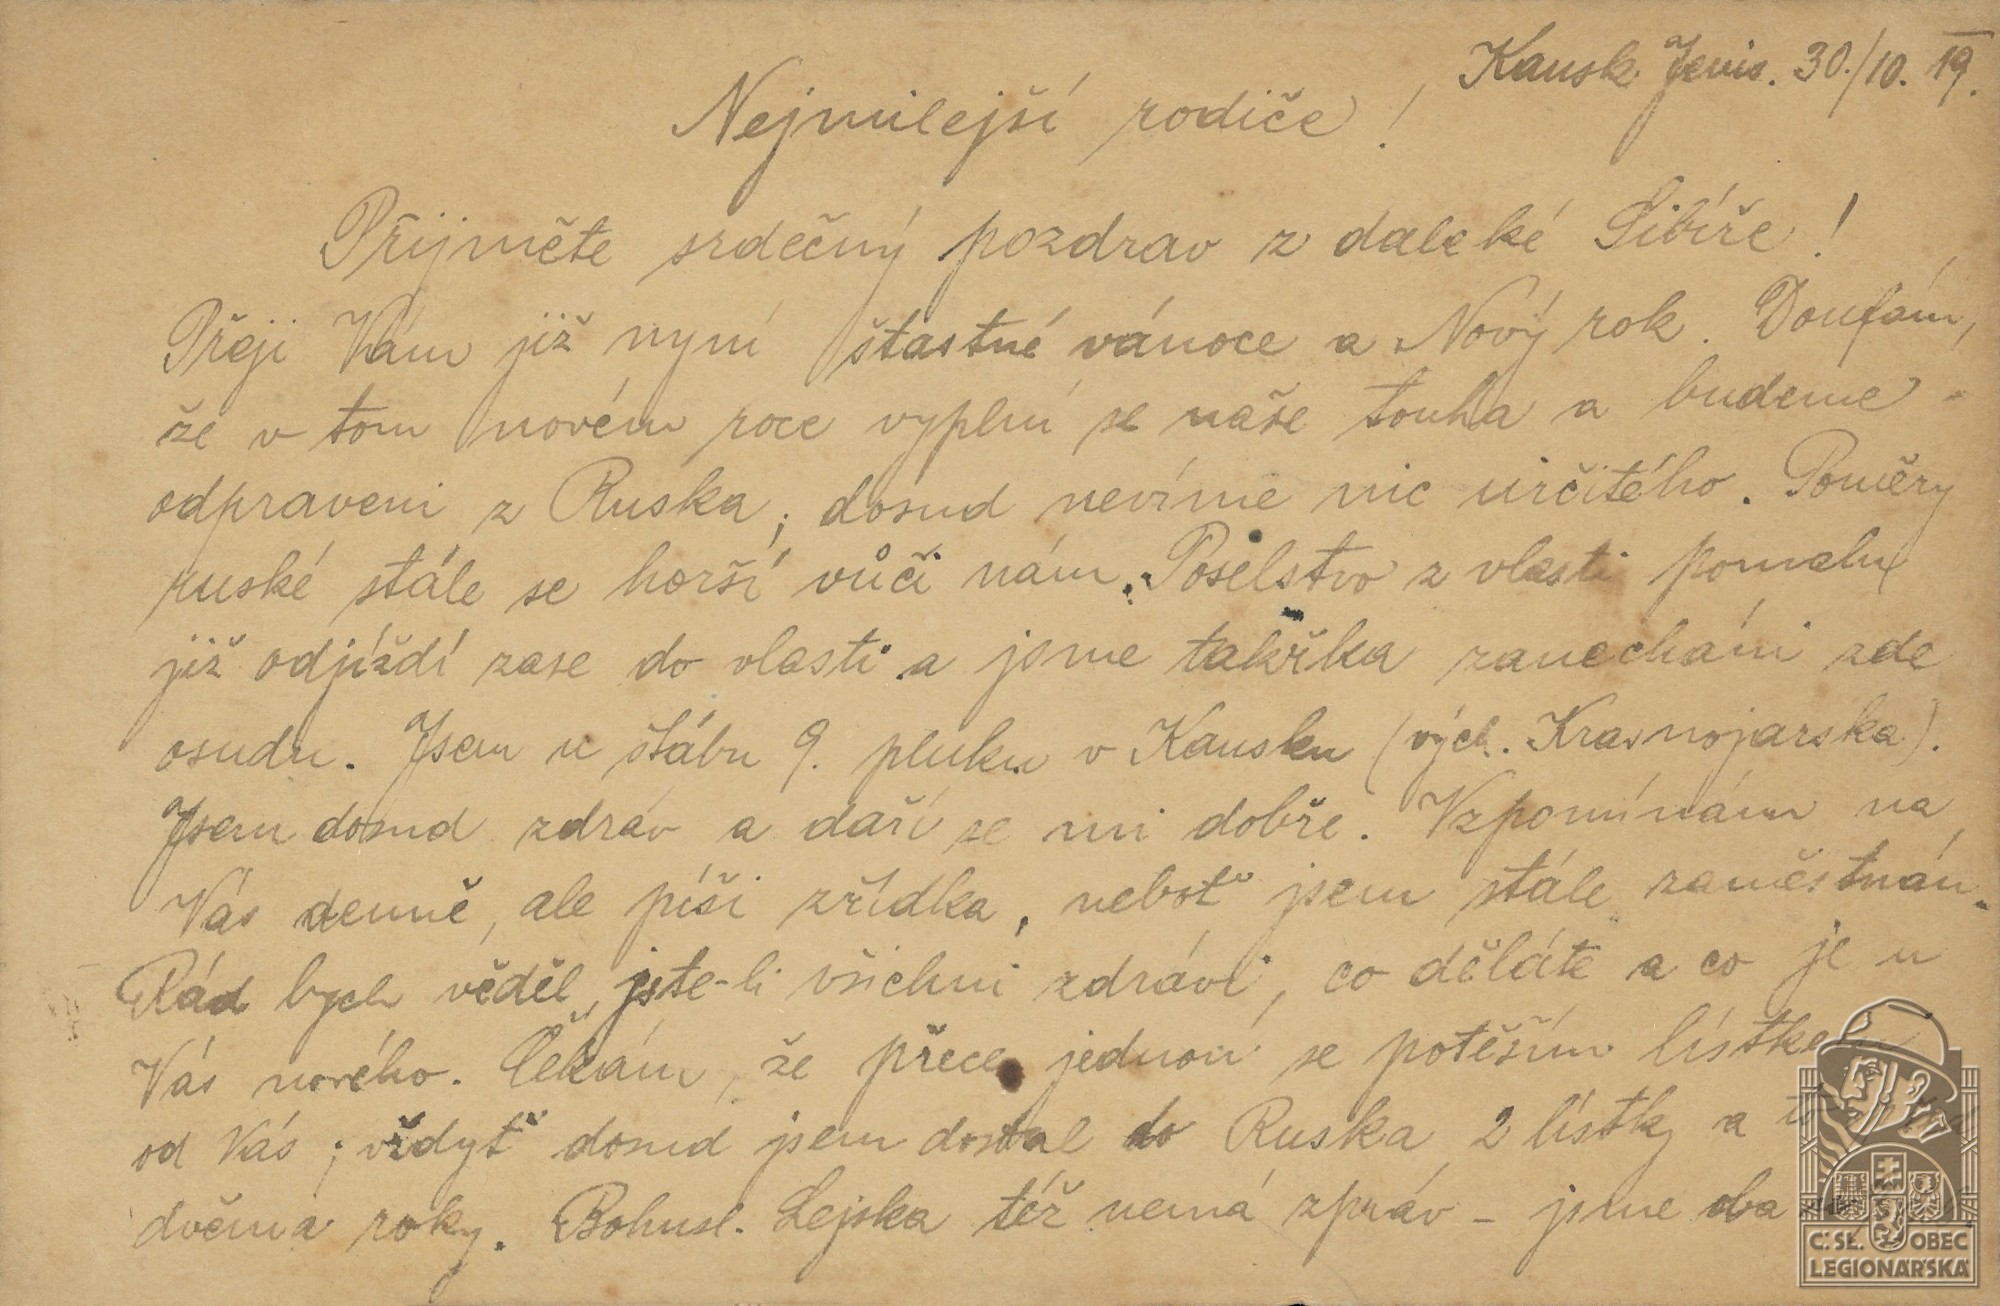 Kansk Jenis. 30./10. 19.
Nejmilejší rodiče!
Přijměte srdečný pozdrav z daleké Sibíře!
Přeji Vám již nyní štastné vánoce a Nový rok. Doufám,
že v tom novém roce vyplní se naše touha a budeme
odpraveni z Ruska; dosud nevíme nic určitého. Poměry
ruské stále se horší vůči nám. Poselstvo z vlasti pomalu
již odjíždí zase do vlasti a jsme takřka zanecháni zde
osudu. Jsem u štábu 9. pluku v Kansku (vých. Krasnojarska).
Jsem dosud zdráv a daří se mi dobře. Vzpomínám na
Vás denně, ale píši zřídka, neboť jsem stále zaměstnán.
Rád bych věděl, jste-li všichni zdrávi, co děláte a co je u
Vás nového. Čekám, že přece jednou se potěším lístkem
od Vás; vždyť dosud jsem dostal do Ruska 2 lístky a
dvěma roky. Bohusl. Lejska též nemá zpráv – jsme oba
Č.SL. OBEC
LEGIONÁŘSKÁ